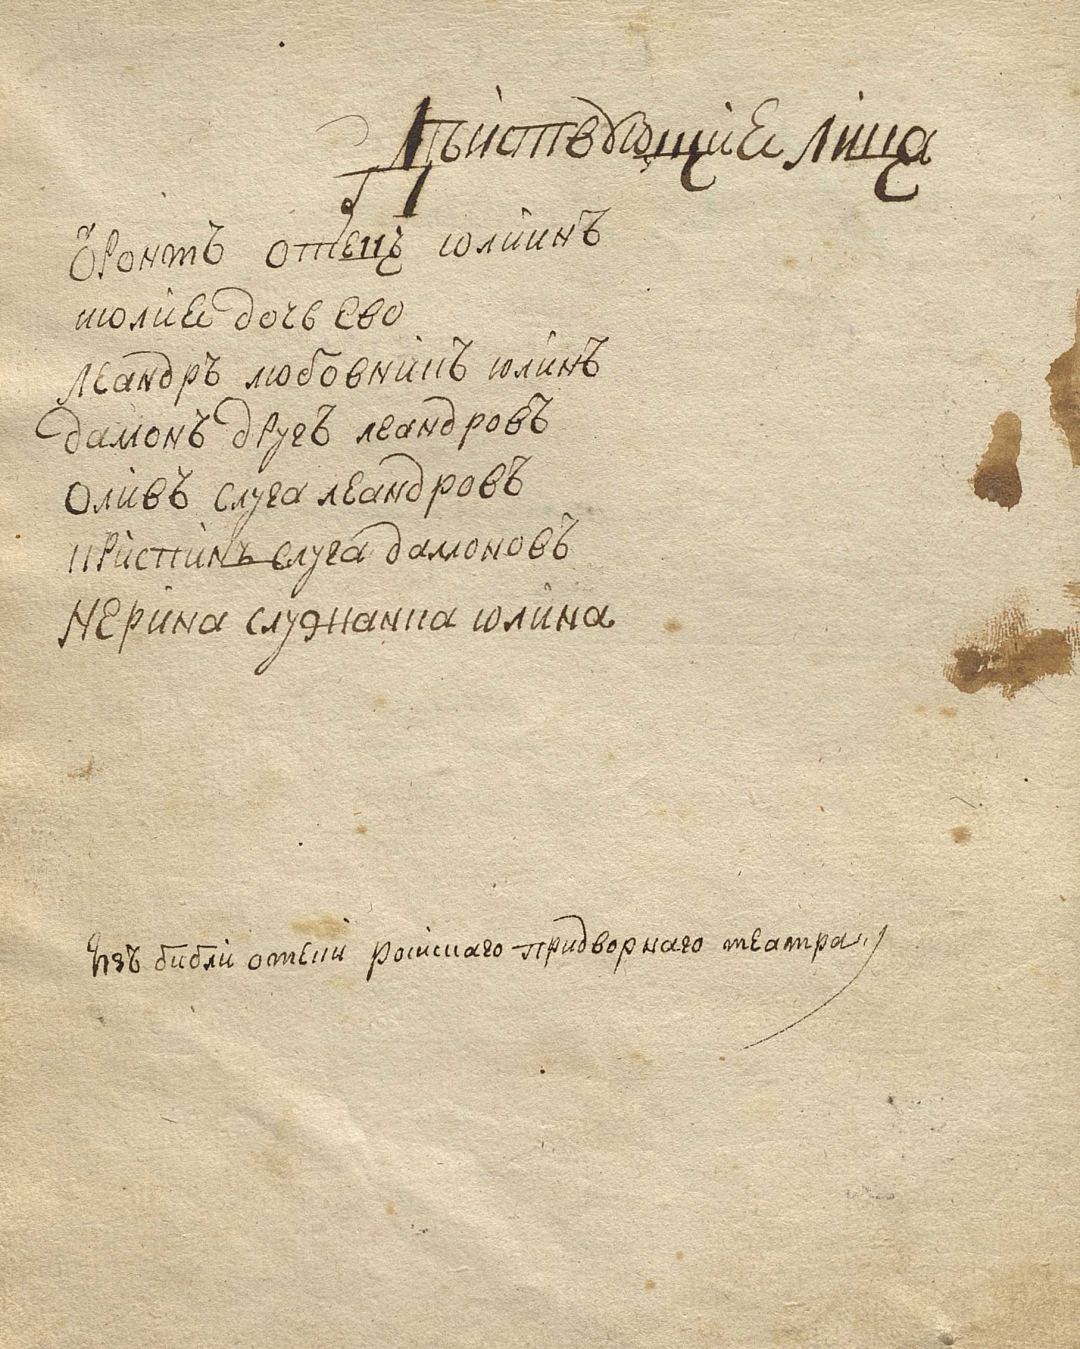 Дѣйствующие Лица
Оронтъ отецъ июлиинъ
июлие дочь Ево
Леандръ любовникъ юлиинъ
Дамонъ другъ леандровъ
Оливъ слуга леандровъ
криспинъ слуга дамоновъ
Нерина служанка юлина
Изъ библиотеки росискаго придворнаго театра